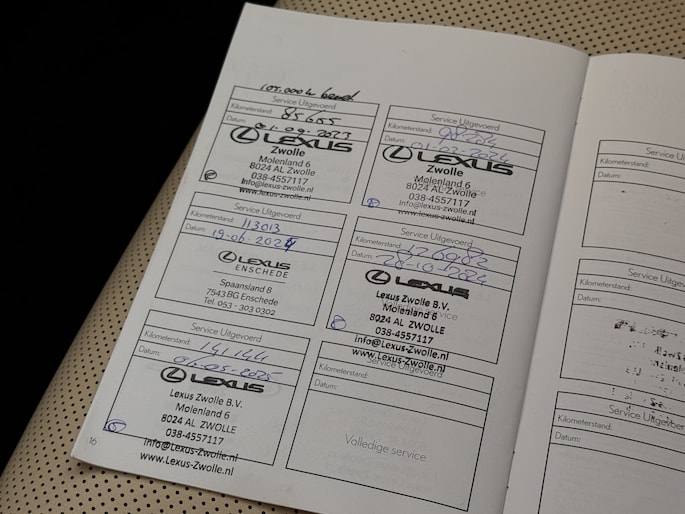 Service Uitgevoerd
Kilometerstand: 85655
Datum: 01-09-2023
LEXUS
Zwolle
Molenland 6
8024 AL Zwolle
038-4557117
info@lexus-zwolle.nl
www.lexus-zwolle.nl
Service Uitgevoerd
Kilometerstand:
Datum: 01-02-2024
LEXUS
Zwolle
Molenland 6
8024 AL Zwolle
038-4557117
info@lexus-zwolle.nl
www.lexus-zwolle.nl
Service Uitgevoerd
Kilometerstand: 113013
Datum: 19-06-2024
LEXUS
ENSCHEDE
Spaansland 8
7543 BG Enschede
Tel. 053 - 303 0302
Service Uitgevoerd
Kilometerstand:
Datum: 28-10-2024
LEXUS
Lexus Zwolle B.V.
Molenland 6
8024 AL ZWOLLE
038-4557117
info@Lexus-Zwolle.nl
www.Lexus-Zwolle.nl
Service Uitgevoerd
Kilometerstand: 141144
Datum: 01-05-2025
LEXUS
Lexus Zwolle B.V.
Molenland 6
8024 AL ZWOLLE
038-4557117
info@Lexus-Zwolle.nl
www.Lexus-Zwolle.nl
Service Uitgevoerd
Kilometerstand:
Datum:
Volledige service
16
Service Uitg
Kilometerstand:
Datum:
Service Uitgev
Kilometerstand:
Datum:
Service Uitgevoer
Kilometerstand:
Datum: